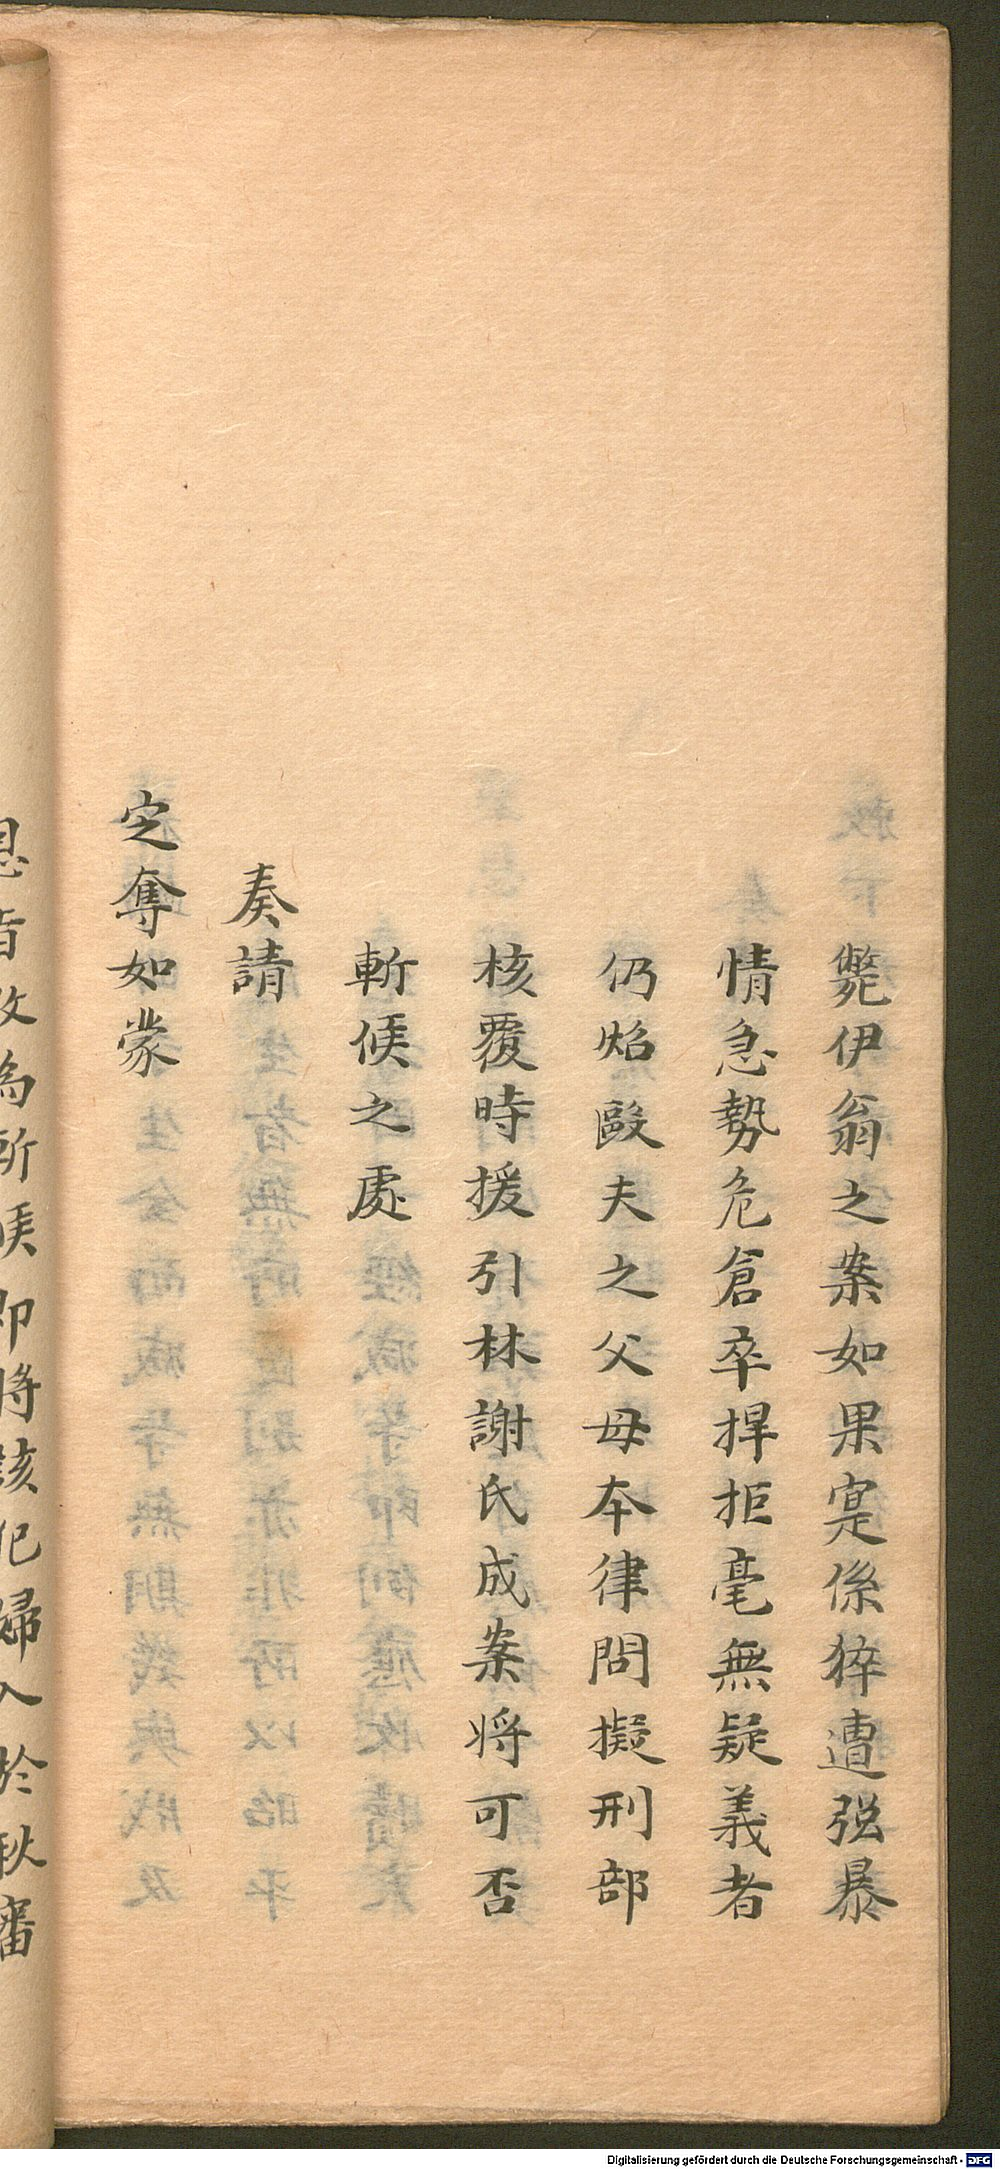 斃伊翁之案如果寔係猝遭强暴
情急勢危倉卒捍拒毫無疑義者
仍焰毆夫之父母本律問擬刑部
核覆時援引林謝氏成案將可否
斬候之處
奏請
定奪如蒙
恩旨改為斬候即將該犯婦入於秋審
Digitalisierung gefördert durch die Deutsche Forschungsgemeinschaft - DFG